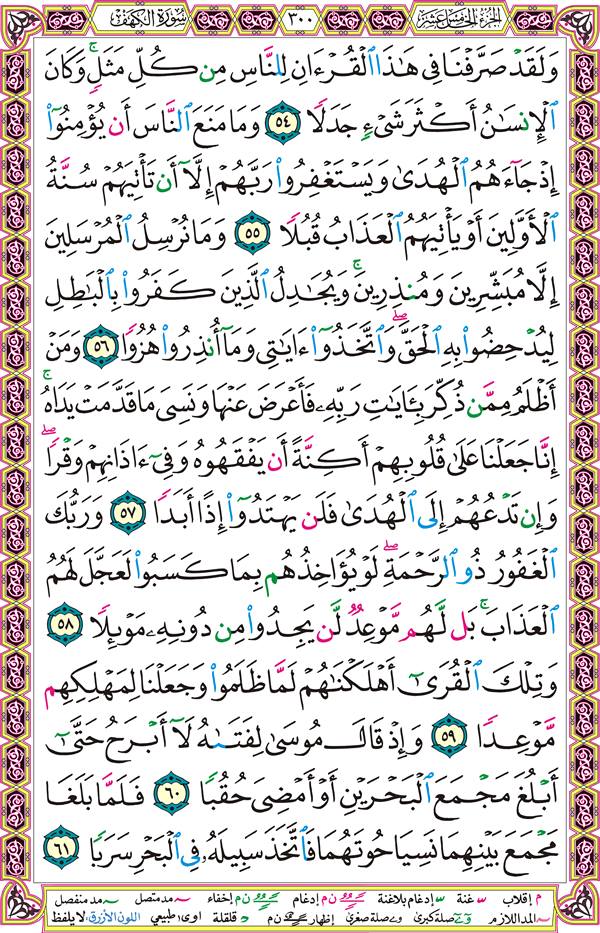 الجزء الخامس عشر ٣٠٠ سورة الكهف
وَلَقَدْ صَرَّفْنَا فِي هَٰذَا ٱلْقُرْءَانِ لِلنَّاسِ مِن كُلِّ مَثَلٍ ۚ وَكَانَ
ٱلْإِنسَٰنُ أَكْثَرَ شَىْءٍ جَدَلًا ٥٤ وَمَا مَنَعَ ٱلنَّاسَ أَن يُؤْمِنُوٓا۟
إِذْ جَآءَهُمُ ٱلْهُدَىٰ وَيَسْتَغْفِرُوا۟ رَبَّهُمْ إِلَّآ أَن تَأْتِيَهُمْ سُنَّةُ
ٱلْأَوَّلِينَ أَوْ يَأْتِيَهُمُ ٱلْعَذَابُ قُبُلًا ٥٥ وَمَا نُرْسِلُ ٱلْمُرْسَلِينَ
إِلَّا مُبَشِّرِينَ وَمُنذِرِينَ ۚ وَيُجَٰدِلُ ٱلَّذِينَ كَفَرُوا۟ بِٱلْبَٰطِلِ
لِيُدْحِضُوا۟ بِهِ ٱلْحَقَّ ۖ وَٱتَّخَذُوٓا۟ ءَايَٰتِى وَمَآ أُنذِرُوا۟ هُزُوًا ٥٦ وَمَنْ
أَظْلَمُ مِمَّن ذُكِّرَ بِـَٔايَٰتِ رَبِّهِۦ فَأَعْرَضَ عَنْهَا وَنَسِىَ مَا قَدَّمَتْ يَدَاهُ ۚ
إِنَّا جَعَلْنَا عَلَىٰ قُلُوبِهِمْ أَكِنَّةً أَن يَفْقَهُوهُ وَفِىٓ ءَاذَانِهِمْ وَقْرًا ۖ
وَإِن تَدْعُهُمْ إِلَى ٱلْهُدَىٰ فَلَن يَهْتَدُوٓا۟ إِذًا أَبَدًا ٥٧ وَرَبُّكَ
ٱلْغَفُورُ ذُو ٱلرَّحْمَةِ ۖ لَوْ يُؤَاخِذُهُم بِمَا كَسَبُوا۟ لَعَجَّلَ لَهُمُ
ٱلْعَذَابَ ۚ بَل لَّهُم مَّوْعِدٌ لَّن يَجِدُوا۟ مِن دُونِهِۦ مَوْئِلًا ٥٨
وَتِلْكَ ٱلْقُرَىٰٓ أَهْلَكْنَٰهُمْ لَمَّا ظَلَمُوا۟ وَجَعَلْنَا لِمَهْلِكِهِم
مَّوْعِدًا ٥٩ وَإِذْ قَالَ مُوسَىٰ لِفَتَىٰهُ لَآ أَبْرَحُ حَتَّىٰٓ
أَبْلُغَ مَجْمَعَ ٱلْبَحْرَيْنِ أَوْ أَمْضِىَ حُقُبًا ٦٠ فَلَمَّا بَلَغَا
مَجْمَعَ بَيْنِهِمَا نَسِيَا حُوتَهُمَا فَٱتَّخَذَ سَبِيلَهُۥ فِى ٱلْبَحْرِ سَرَبًا ٦١
م إقلاب غنة إدغام بلاغنة ن م إدغام ن م إخفاء مد متصل مد منفصل
المد اللازم صلة كبرى صلة صغرى إظهار ن م قلقلة اوى: طبيعي اللون الأزرق: لا يلفظ